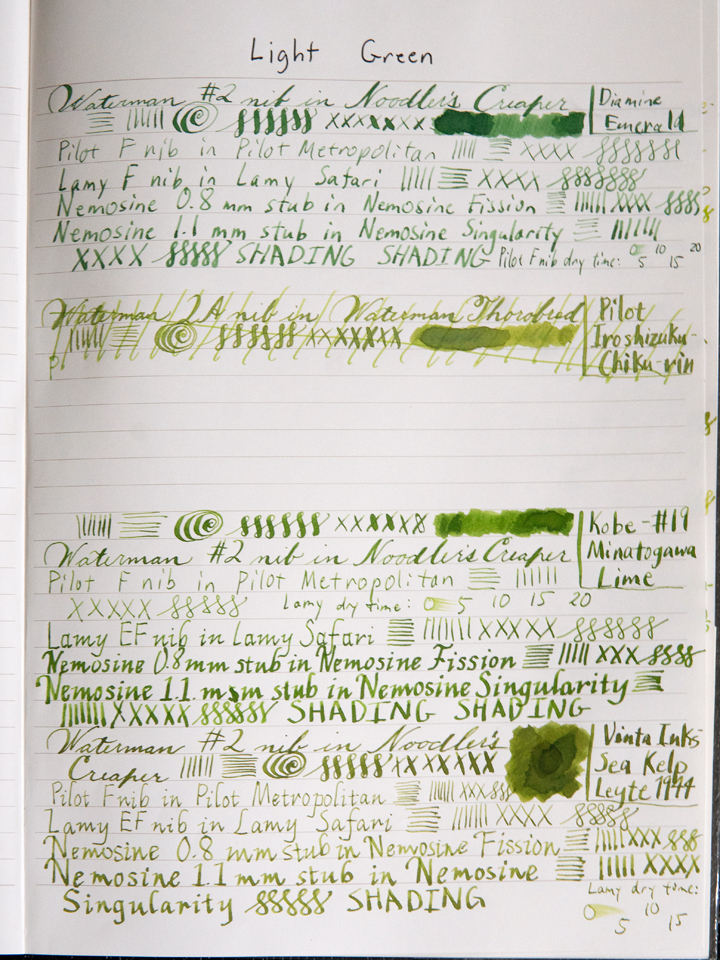 Light Green
Waterman #2 nib in Noodler's Creaper
Diamine
Emerald
XXXXXXX
Pilot F nib in Pilot Metropolitan XXXX
Lamy F nib in Lamy Safari XXXX
Nemosine 0.8 mm stub in Nemosine Fission XXX
Nemosine 1.1 mm stub in Nemosine Singularity
XXXX SHADING SHADING Pilot F nib dry time: 0 5 10 15 20
Waterman 2A nib in Waterman Thorobred
Pilot
Iroshizuku-
Chiku-rin
XXXXXXX
XXXXXX
Kobe-#19
Minatogawa
Lime
Waterman #2 nib in Noodler's Creaper
Pilot F nib in Pilot Metropolitan
XXXXX Lamy dry time: 0 5 10 15 20
Lamy EF nib in Lamy Safari XXXXX
Nemosine 0.8mm stub in Nemosine Fission XXX
Nemosine 1.1 mm stub in Nemosine Singularity
XXXXX SHADING SHADING
Waterman #2 nib in Noodler's
Vinta Inks
Sea Kelp
Leyte 1944
Creaper XXXXXXX
Pilot F nib in Pilot Metropolitan XXX
Lamy EF nib in Lamy Safari XXXX
Nemosine 0.8 mm stub in Nemosine Fission XXX
Nemosine 1.1 mm stub in Nemosine XXXX
Singularity SHADING
Lamy dry time:
0 5 10 15